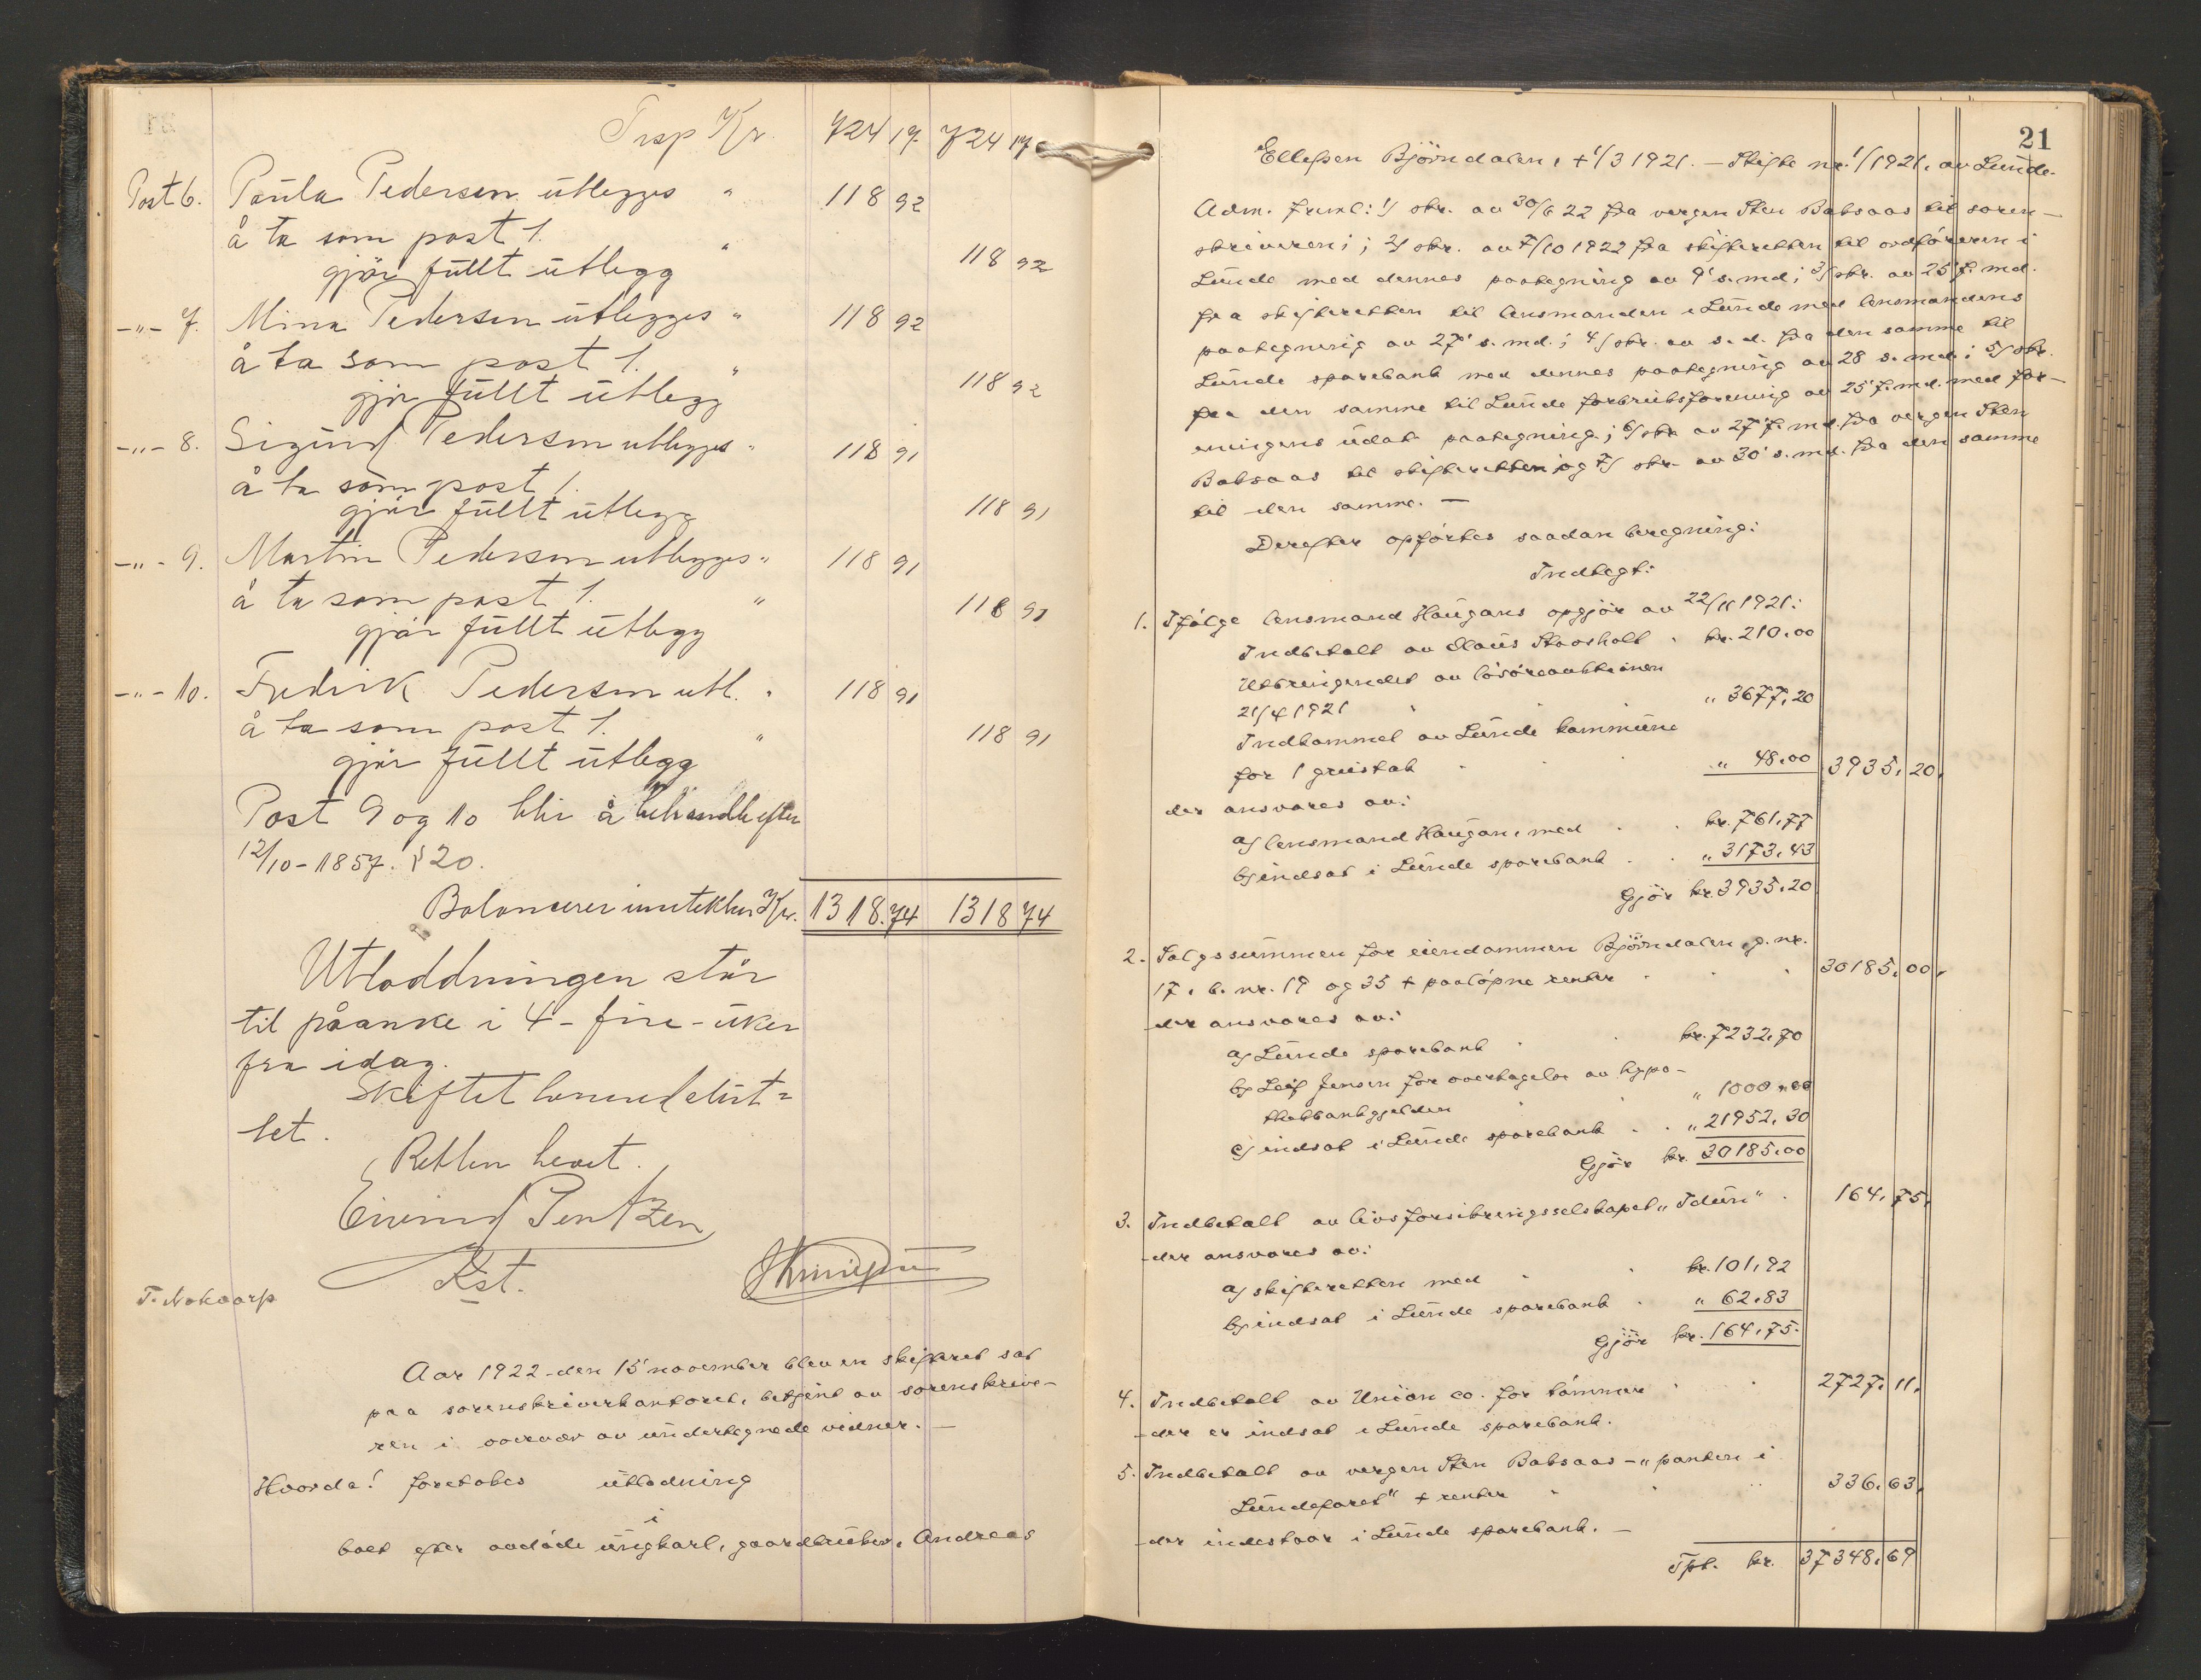 Trsp Kr. 724 17 724 17
Post 6. Paula Pedersen utlegges " 118 92
å ta som post 1. "
gjör fullt utlegg 118 92
-"- 7. Mina Pedersen utlegges " 118 92
å ta som post 1. "
gjör fullt utlegg 118 92
-"- 8. Sigurd Pedersen utlegges " 118 91
å ta som post 1.
gjör fullt utlegg 118 91
-"- 9. Martin Pedersen utlegges " 118 91
å ta som post 1. "
gjör fullt utlegg 118 91
-"- 10. Fredrik Pedersen utl. " 118 91
å ta som post 1. "
gjör fullt utlegg 118 91
Post 9 og 10 blir å behandle efter
12/10-1857. § 20.
Balancerer Kr. 1318.74 1318 74
Utloddningen står
til påanke i 4-fire-uker
fra idag.
Skiftet dermed slut=
tet.
Retten hevet.
Eivind Pentzen
Kst.
Aar 1922 den 15' november blev en skifteret sat
paa sorenskriverkontoret, betjent av sorenskrive-
ren i overvær av undertegnede vidner. —
Hvorda! foretokes utlodning
i
boet efter avdøde ungkarl, gaardbruker, Andreas
21
Ellefsen Bjørndalen, + 1/3 1921. — Skifte nr. 1/1921, av Lunde.
Adm. freml: 1/ skr. av 30/6 22 fra vergen Sten Baksaas til soren-
skriveren; 2/ skr. av 7/10 1922 fra skifteretten til ordføreren i
Lunde med dennes paategning av 9' s. md; 3/ skr. av 25' f. md.
fra skifteretten til lensmanden i Lunde med lensmandens
paategning av 27' s. md.; 4/ skr. av s. d. fra den samme til
Lunde sparebank med dennes paategning av 28 s. md; 5/ skr.
fra den samme til Lunde forbruksforening av 25' f. md. med for-
eningens udat. paategning; 6/ skr. av 27' f. md. fra vergen Sten
Baksaas til skifteretten og 7/ skr. av 30' s. md. fra den samme
til den samme. —
Derefter opførtes saadan beregning:
Indtegt:
1. Ifølge lensmand Haugans opgjør av 22/11 1921:
Indbetalt av Claus Staasholt kr. 210.00
Utbringendet av løsøreauktionen
21/4 1921 " 3677,20
Indkommet av Lunde kommune
for 1 " 48.00 3935,20.
der ansvares av:
a/ lensmand Haugan, med kr. 761,77
b/ indsat i Lunde sparebank " 3173,43
Gjør kr. 3935.20
2. Salgssummen for eiendommen Bjørndalen, g. nr.
17, b. nr. 19 og 35 + paaløpne renter 30185,00.
der ansvares av:
a/ Lunde sparebank kr. 7232,70
b/ Leif Jensen for overtagelse av hypo-
thekbankgjælden " 1000,00
c/ indsat i Lunde sparebank " 21952,30
Gjør kr. 30185.00
3. Indbetalt av livsforsikringsselskapet "Idun" 164,75.
der ansvares av:
a/ skifteretten med kr. 101,92
b/ indsat i Lunde sparebank " 62.83
Gjør kr. 164.75.
4. Indbetalt av Union co. for tømmer 2727,11.
der er indsat i Lunde sparebank.
5. Indbetalt av vergen Sten Baksaas - "parten i
Lundefaret" + renter 336,63.
der indestaar i Lunde sparebank. —
Tpt. kr. 37348.69